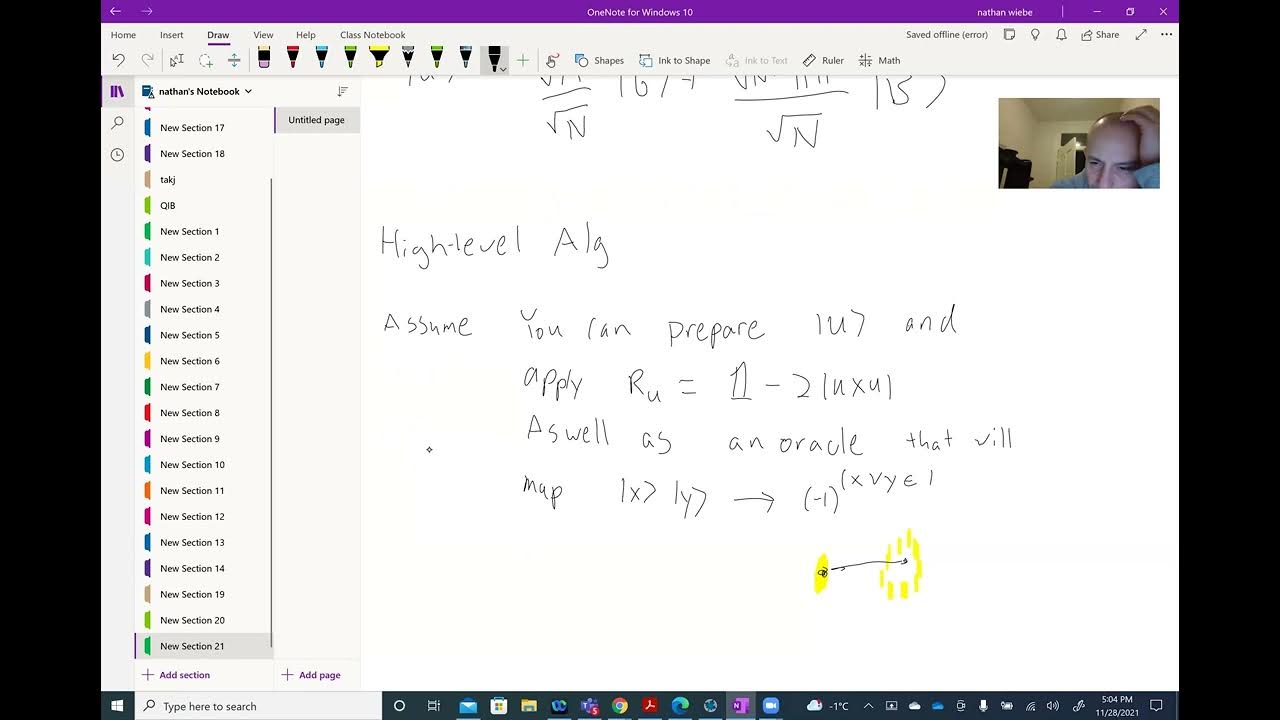 OneNote for Windows 10
nathan wiebe
Home Insert Draw View Help Class Notebook
Saved offline (error)
Share
Shapes
Ink to Shape
Ink to Text
Ruler
Math
nathan's Notebook
Untitled page
New Section 17
New Section 18
takj
QIB
New Section 1
New Section 2
New Section 3
New Section 4
New Section 5
New Section 6
New Section 7
New Section 8
New Section 9
New Section 10
New Section 11
New Section 12
New Section 13
New Section 14
New Section 19
New Section 20
New Section 21
Add section
Add page
√N √N
High-level Alg
Assume You can prepare |u> and
apply Ru = 𝟙 - 2|uXu|
Aswell as an oracle that will
map |x> |y> → (-1)^(x∨y∈
Type here to search
-1°C
5:04 PM
11/28/2021